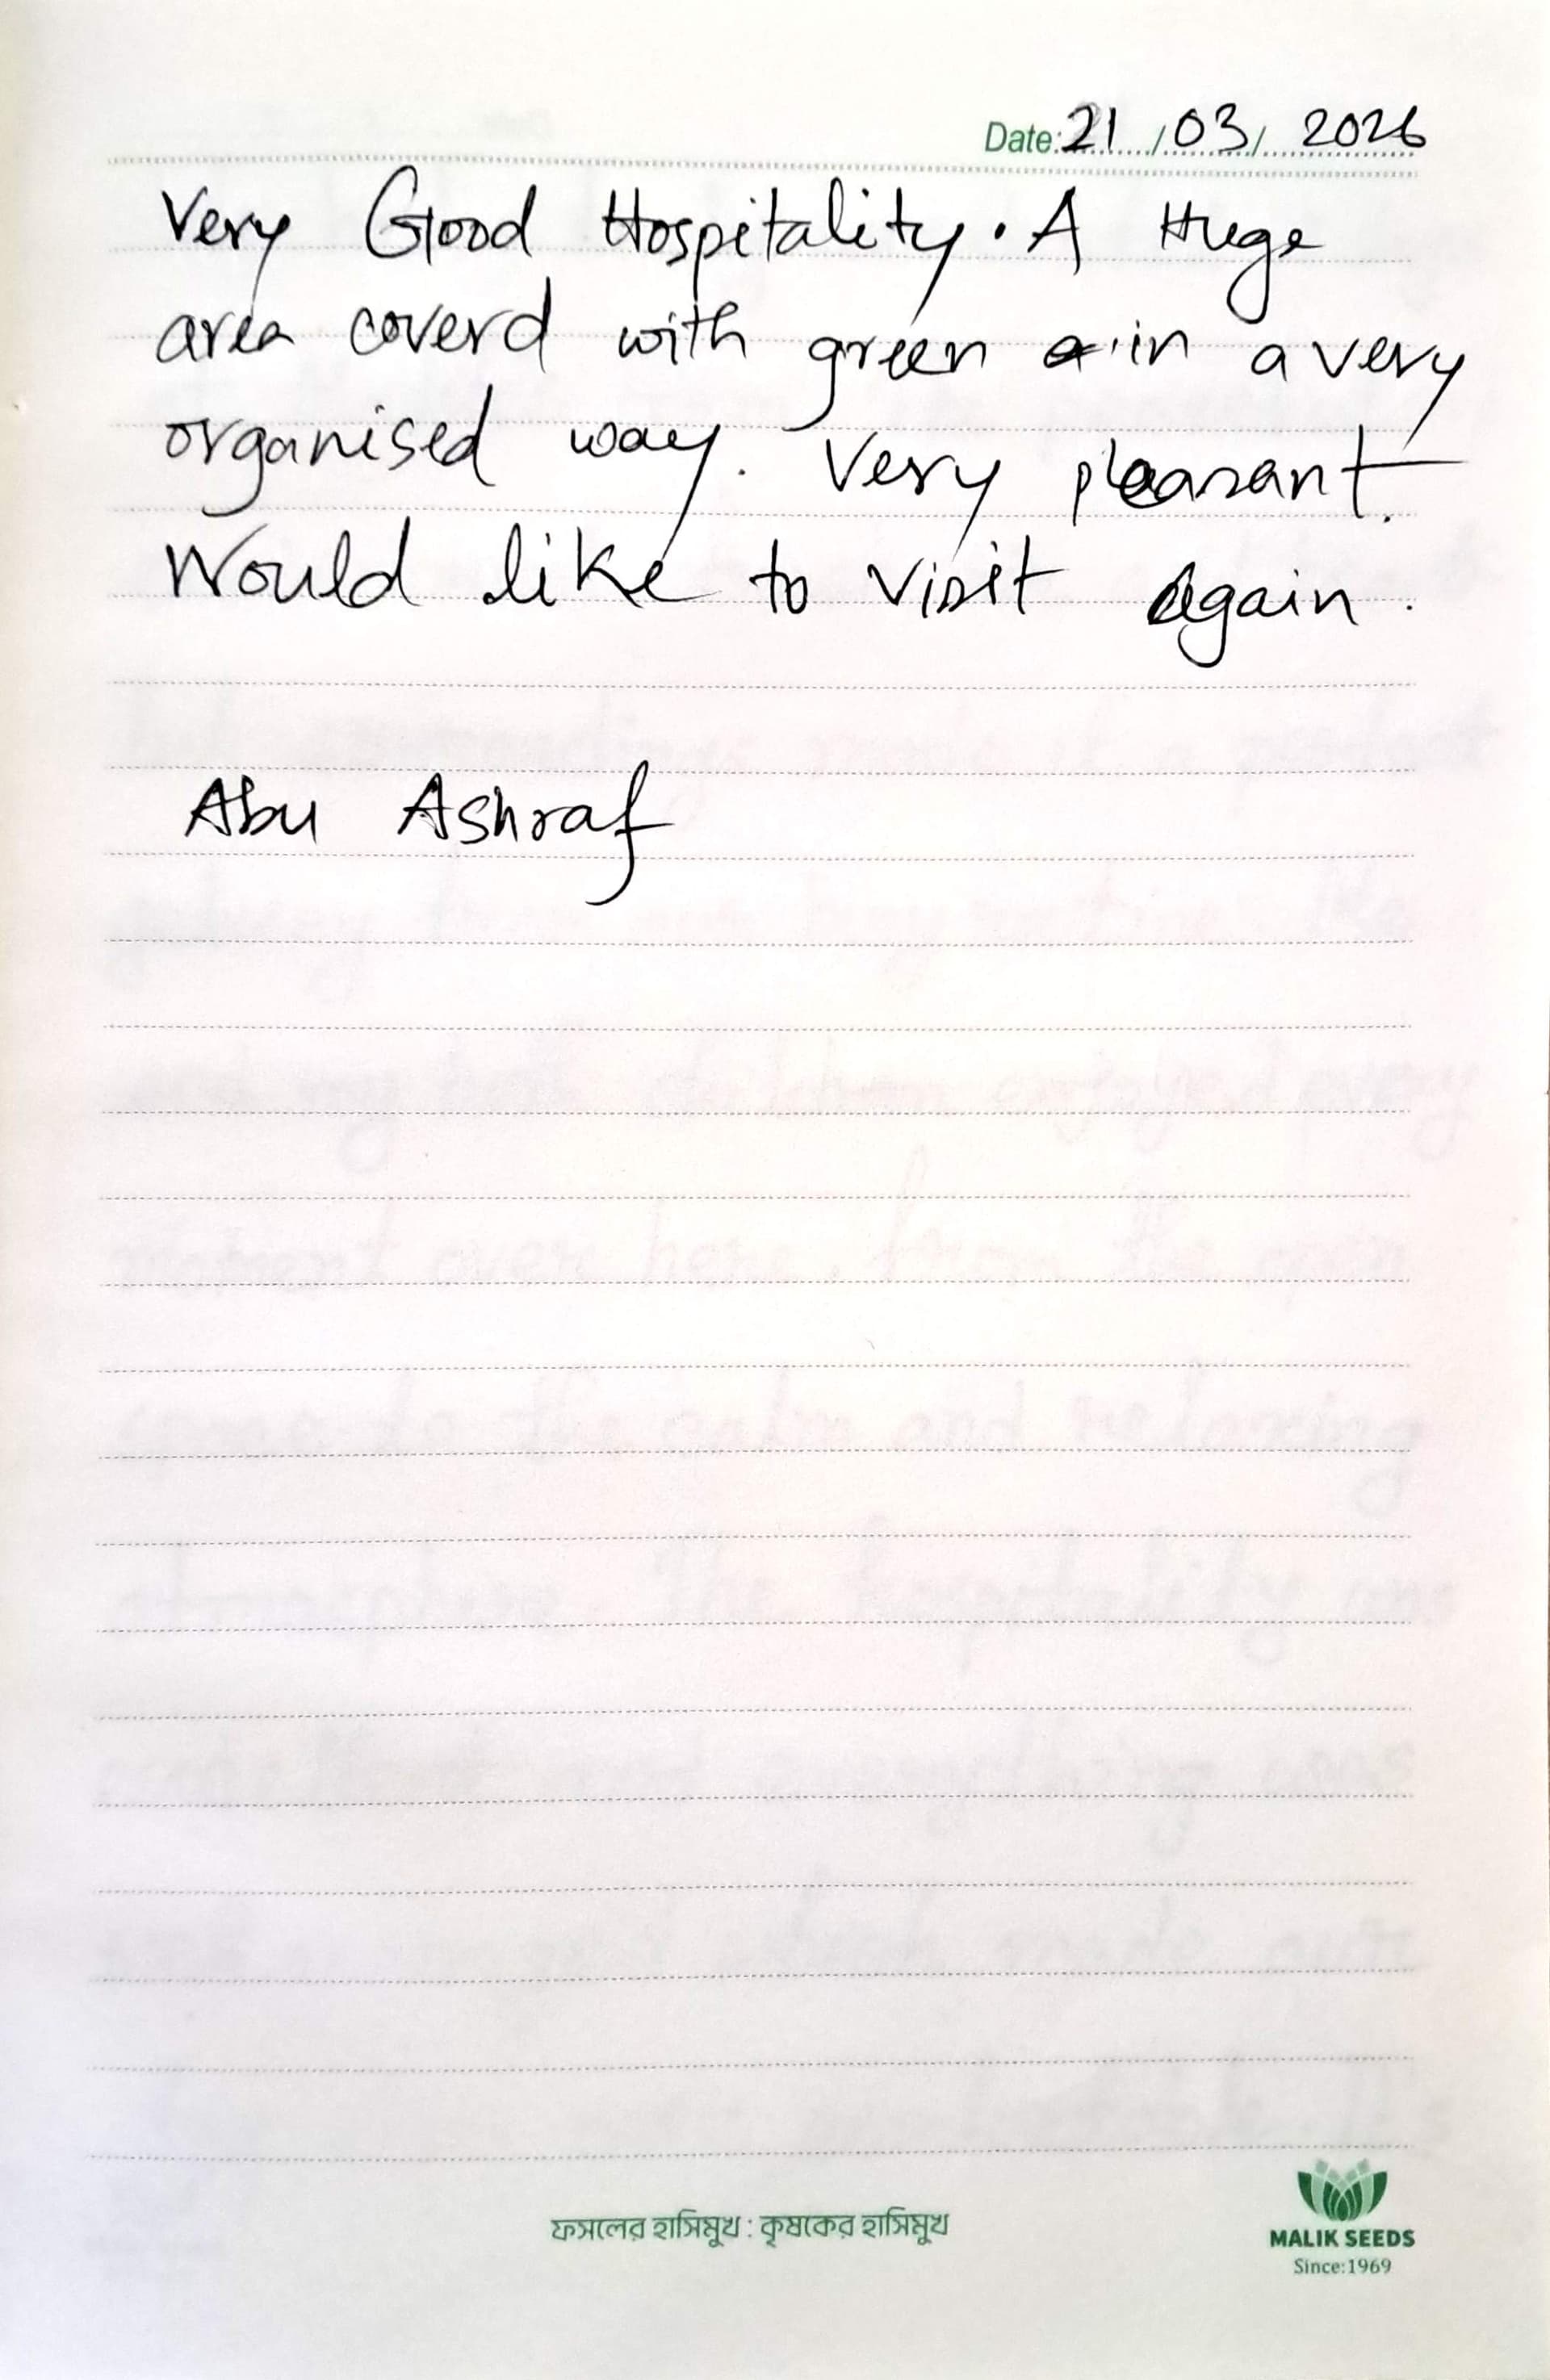 Date: 21 / 03 / 2026
Very Good Hospitality. A Huge
area coverd with green in a very
organised way. Very pleasant.
Would like to visit again.
Abu Ashraf
ফসলের হাসিমুখ : কৃষকের হাসিমুখ
MALIK SEEDS
Since:1969